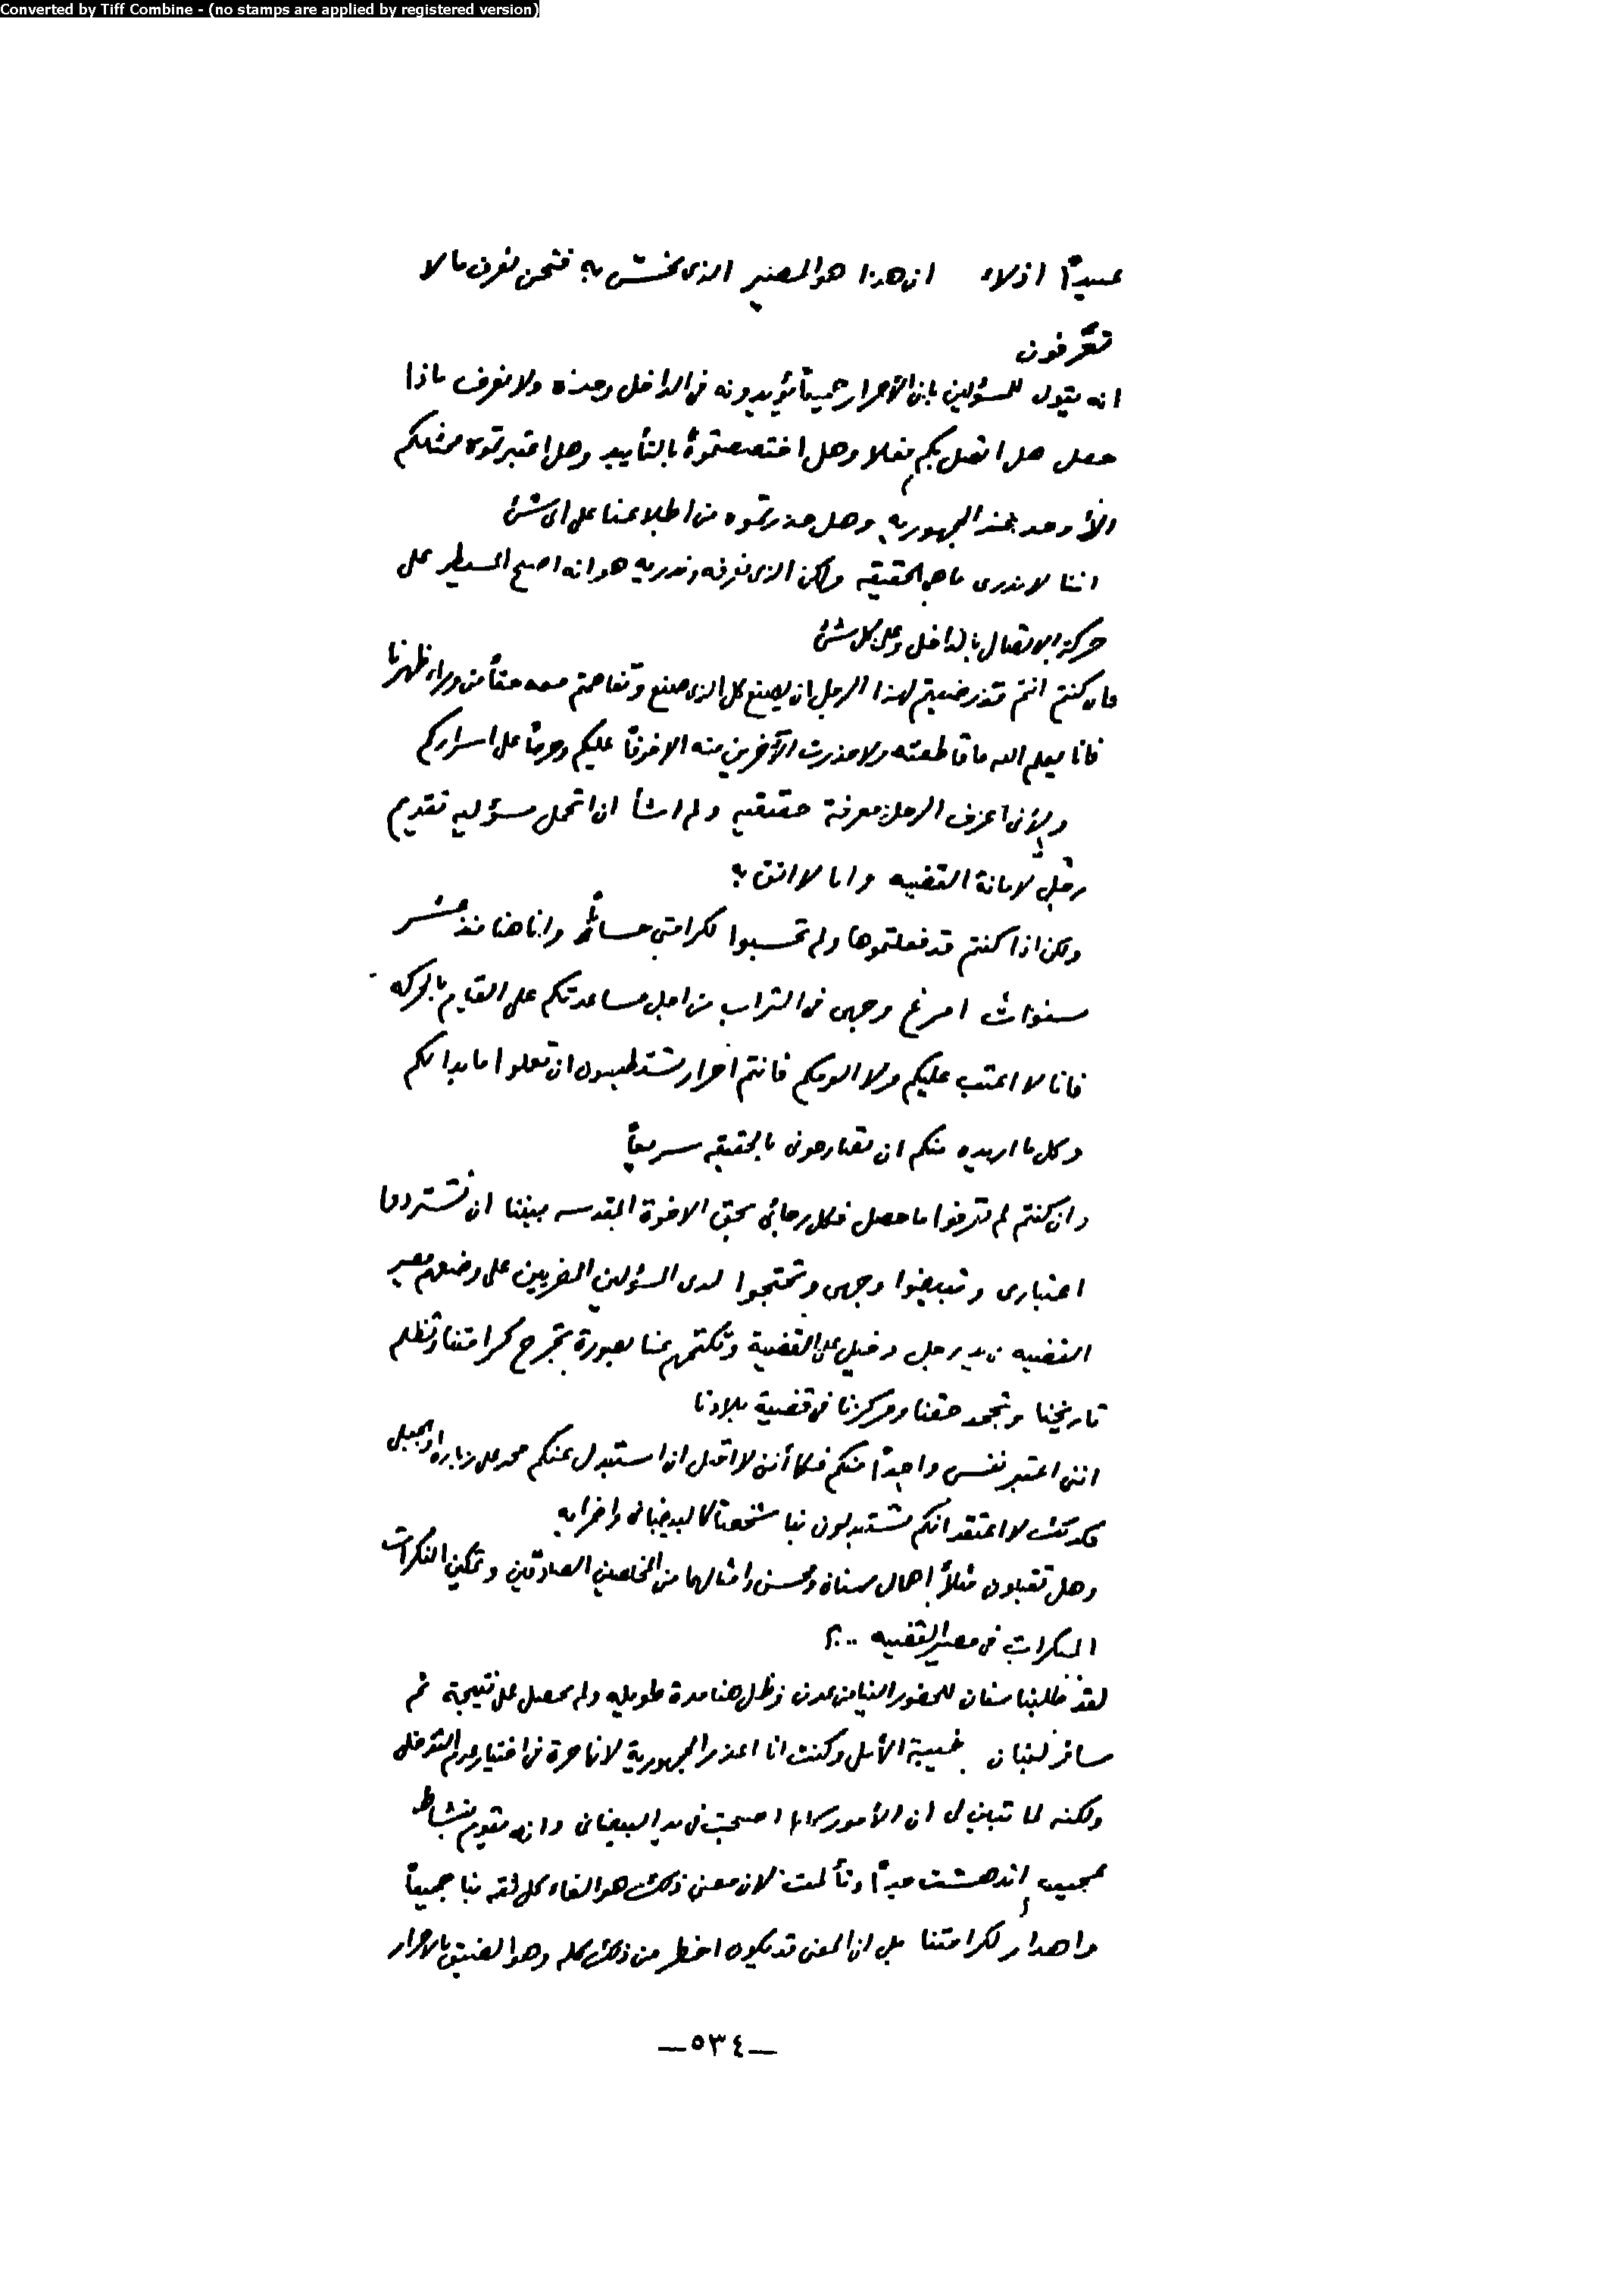 Converted by Tiff Combine - (no stamps are applied by registered version)
عبيداً اذلاء ان هذا هو المصير الذى نخشى فنحن نعرف ما لا
تعرفون
انه يقول للمسؤلين بان الأحرار جميعاً يؤيدونه فى الداخل وحده ولا نعرف ماذا
حصل هل اتصل بكم فعلا وهل اختصصتموه بالتأييد وهل اعتبرتموه ممثلكم
الأوحد عند الجمهوريه وهل حذرتموه من اطلاعنا على اى شئ
اننا لا ندرى ما هى الحقيقه ولكن الذى نعرفه وندريه هو انه اصبح المسيطر على
حركة الاتصال بالداخل وعلى كل شئ
فان كنتم انتم قد رضيتم لهذا الرجل ان يصنع كل الذى صنع وتفاهمتم معه حقاً من وراء ظهرنا
فانا يعلم الله ما قاطعته ولا حذرت الآخرين منه الا خوفاً عليكم وحرصاً على اسراركم
ولأنى اعرف الرجل معرفة حقيقيه ولم اشأ ان اتحمل مسؤليه تقديم
رجل لامانة القضيه وانا لا اثق به
ولكن اذا كنتم قد فعلتموها ولم تحسبوا لكرامتى حساباً وانا هنا منذ عشر
سنوات امرغ وجهى فى التراب من اجل مساعدتكم على القيام بالحركه
فانا لا اعتب عليكم ولا الومكم فانتم احرار تستطيعون ان تعملوا ما بدا لكم
وكل ما اريده منكم ان تصارحونى بالحقيقه سريعاً
وان كنتم لم تعرفوا ما حصل فكل رجائى بحق الاخوة المقدسه بيننا ان تستردوا
اعتبارى وتبيضوا وجهى وتحتجوا لدى المسؤلين المصريين على وضعهم مصير
القضيه فى يد رجل دخيل على القضية وتكتمهم عنا بصورة تجرح كرامتنا وتظلم
تاريخنا وتجحد حقنا ومركزنا فى قضية بلادنا
اننى اعتبر نفسى واحداً منكم فكما أننى لا اقبل ان استبدل عنكم محمد على زباره او الجبلى
فكذلك لا اعتقد انكم تستبدلون بنا شخصاً كالبيضانى واضرابه
وهل تقبلون مثلاً اهمال سنان ومحسن وامثالهما من المخلصين الصادقين وتمكين النكرات
المنكرات فى مصير القضيه ..؟
لقد طلبنا سنان للحضور الينا من عدن وظل هنا مدة طويله ولم يحصل على نتيجة ثم
سافر لبنان بخيبة الأمل وكنت انا اعذر الجمهورية لانها حرة فى اختيار عدم التدخل
ولكنه لما تبين لى ان الأمور كلها اصبحت فى يد البيضانى وانه يقوم بنشاط
عجيب اندهشت جداً وتألمت لان معنى ذلك هو الغاء كل ثقه بنا جميعاً
واهدار لكرامتنا بل ان المعنى قد يكون اخطر من ذلك كله وهو الضيق بالاحرار
—٥٣٤—